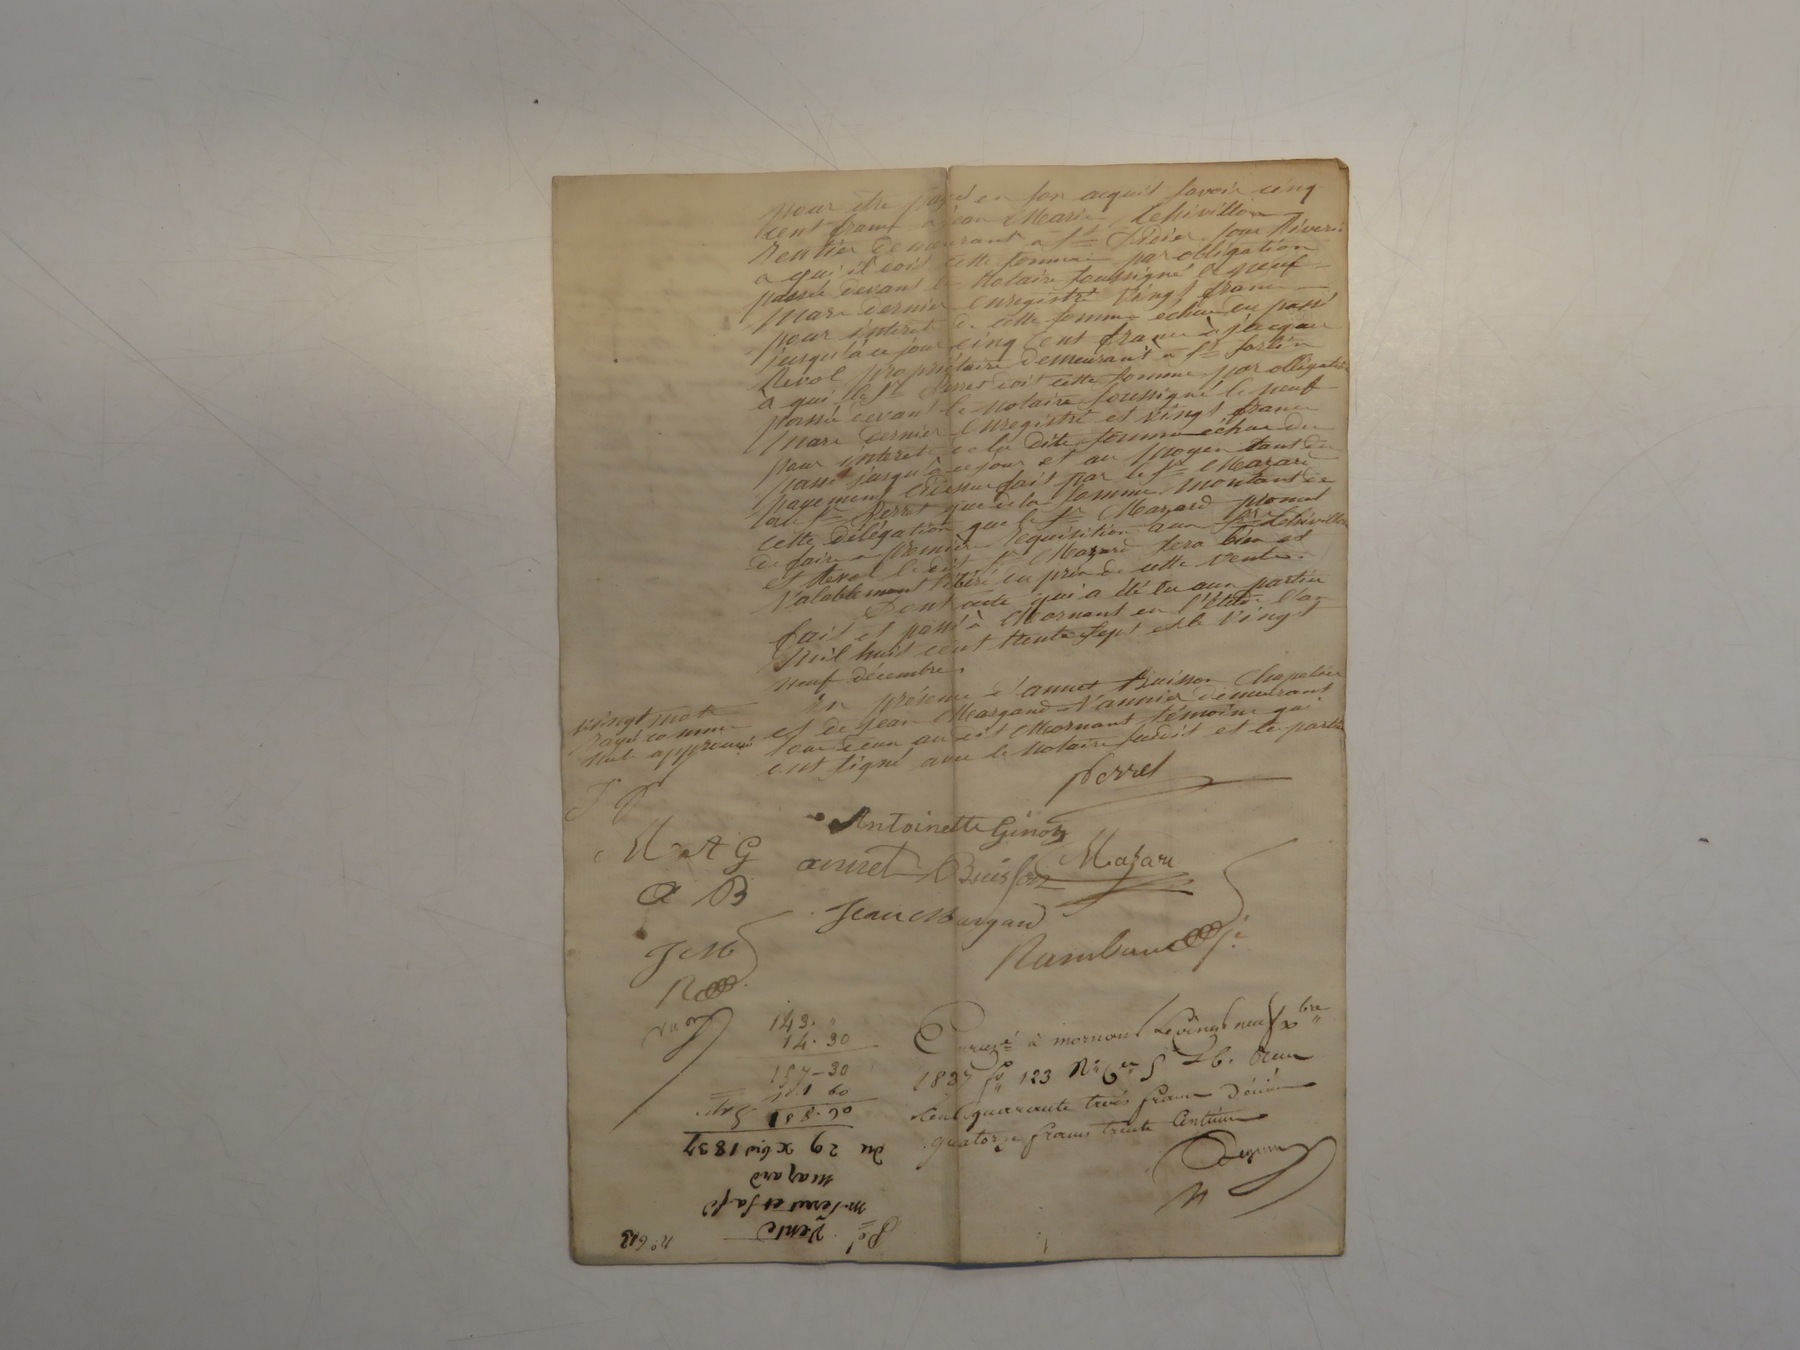 pour être payé en son acquit savoir cinq
cent francs à Jean Marie Tchivillon
Rentier demeurant à St Didier sous Riverie
a qui il doit cette somme par obligation
passée devant le Notaire soussigné le neuf
mars dernier enregistré Vingt francs
pour interet de cette somme échue du passé
jusqu'à ce jour cinq cent francs à jacques
Revol propriétaire demeurant à St Sorlin
à qui le Sr Perret doit cette somme par obligation
passé devant le Notaire soussigné le neuf
mars dernier enregistré et vingt francs
pour interet de la dite somme échue du
passé jusqu'à ce jour et au moyen tant du
payement cidessus fait par le Sr Mazard
au Sr Perret que de la somme montant de
cette délégation que le Sr Mazard promet
de faire a premiere Requisition aux Srs Tchivillon
et Revol le dit Sr Mazard sera bien et
Valablement libéré du prix de cette vente.
Dont acte qui a été lu aux parties
fait et passé à Mornant en l'Etude l'an
mil huit cent trente sept et le vingt
neuf décembre.
En présence d'annet Buisson Chapelier
et de Jean Margand Vannier demeurant
tous deux au dit Mornant témoins qui
ont signé avec le Notaire susdit et les parties
vingt mots
rayé comme
nuls approuvé
J P
Perret
Antoinette Ginon
M A G
annet Buisson
Mazard
a B
Jean Margand
J M
Rambaud
R
143. "
14. 30
157-30
1. 60
Enregé à mornant le vingt neuf xbre
1837 fo 123 Ro Cen 5 et 6. Reçu
cent quarante trois francs Décime
quatorze francs trente Centimes
du 29 xbre 1837
Mazard
Vente
no 613